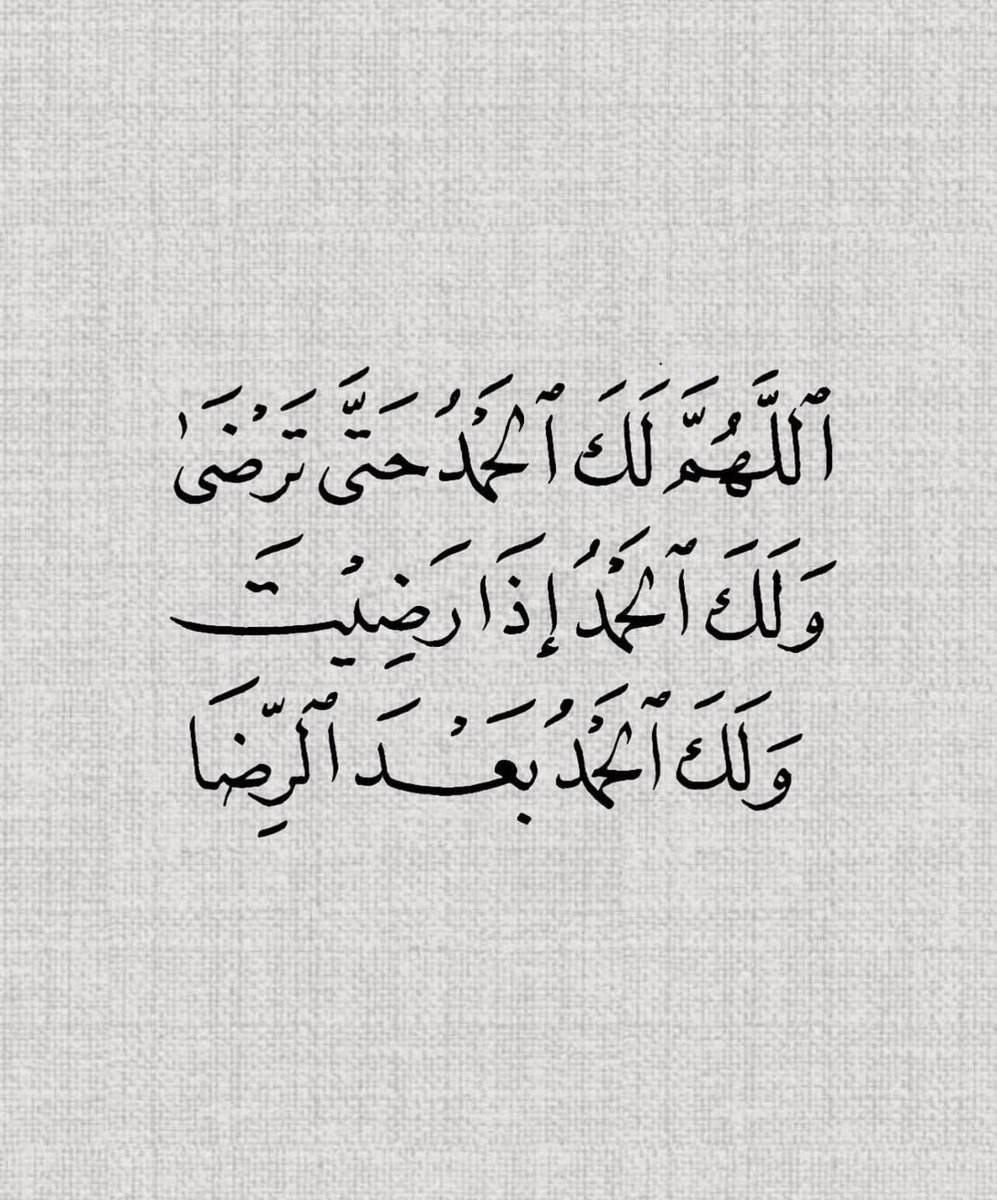 ٱللَّهُمَّ لَكَ ٱلْحَمْدُ حَتَّى تَرْضَىٰ
وَلَكَ ٱلْحَمْدُ إِذَا رَضِيْتَ
وَلَكَ ٱلْحَمْدُ بَعْدَ ٱلرِّضَا